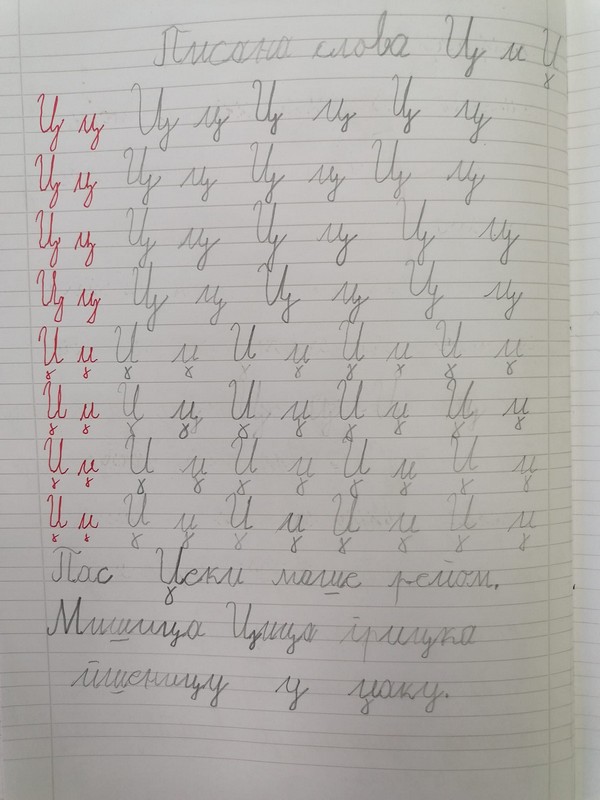 Писана слова Ц и Џ
Ц ц Ц ц Ц ц Ц ц
Ц ц Ц ц Ц ц Ц ц
Ц ц Ц ц Ц ц Ц ц
Ц ц Ц ц Ц ц Ц ц
Џ џ Џ џ Џ џ Џ џ Џ џ
Џ џ Џ џ Џ џ Џ џ Џ џ
Џ џ Џ џ Џ џ Џ џ Џ џ
Џ џ Џ џ Џ џ Џ џ Џ џ
Пас Џеки маше репом.
Мишица Цица грицка
пшеницу у џаку.